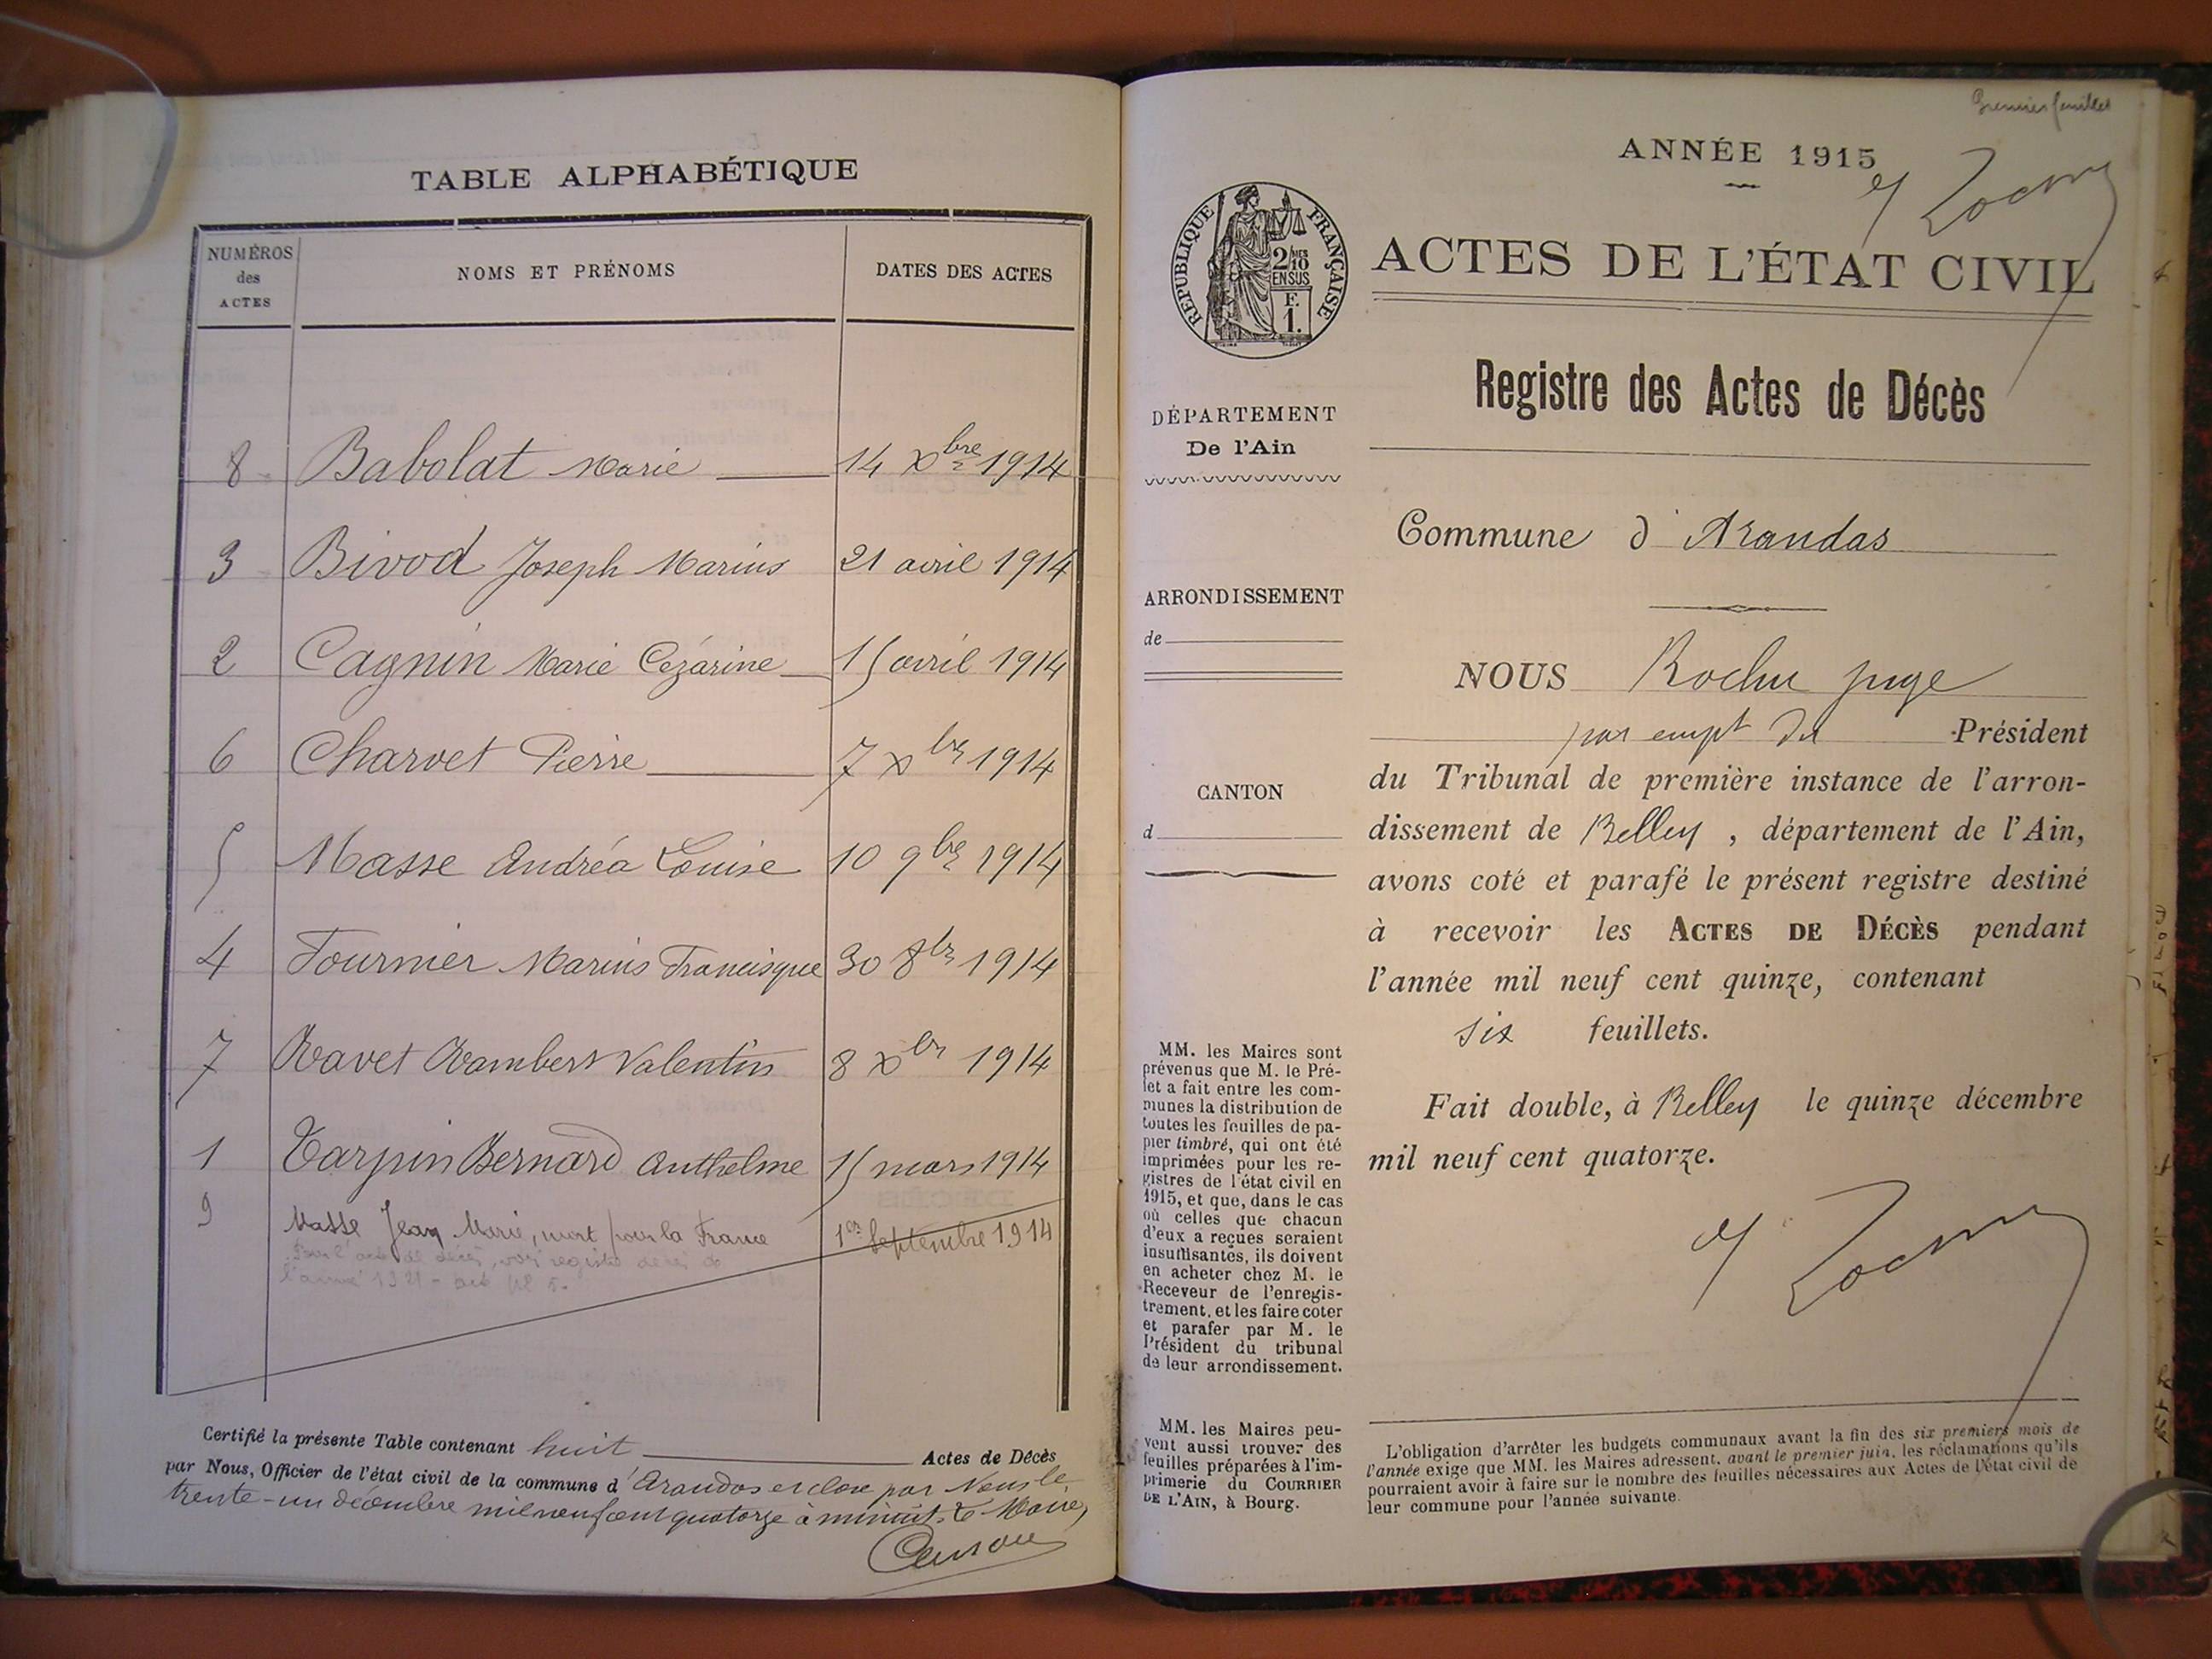 TABLE ALPHABÉTIQUE
NUMÉROS des ACTES
NOMS ET PRÉNOMS
DATES DES ACTES
8 Babolat Marie 14 Xbre 1914
3 Bivod Joseph Marius 21 avril 1914
2 Cagnin Marie Cezárine 15 avril 1914
6 Charvet Pierre 7 Xbre 1914
5 Masse Andréa Louise 10 9bre 1914
4 Fournier Marius Francisque 30 8bre 1914
7 Ravet Rambert Valentin 8 Xbre 1914
1 Tarpin Bernard Anthelme 15 mars 1914
9 Masse Jean Marie, mort pour la France 1er Septembre 1914
Pour l'acte de décès, voir registre décès de
l'année 1921 - acte No 5 -
Certifié la présente Table contenant huit Actes de Décès
par Nous, Officier de l'état civil de la commune d'Arandas et close par Nous le
trente-un décembre mil neuf cent quatorze à minuit. Le Maire,
Premier feuillet
ANNÉE 1915
RÉPUBLIQUE FRANÇAISE
2/10MES
EN SUS
F.
1.
ACTES DE L'ÉTAT CIVIL
Registre des Actes de Décès
DÉPARTEMENT
De l'Ain
Commune d'Arandas
ARRONDISSEMENT
de
CANTON
d
NOUS Rochu juge
par empt du Président
du Tribunal de première instance de l'arron-
dissement de Belley, département de l'Ain,
avons coté et parafé le présent registre destiné
à recevoir les ACTES DE DÉCÈS pendant
l'année mil neuf cent quinze, contenant
six feuillets.
Fait double, à Belley le quinze décembre
mil neuf cent quatorze.
MM. les Maires sont
prévenus que M. le Pré-
fet a fait entre les com-
munes la distribution de
toutes les feuilles de pa-
pier timbré, qui ont été
imprimées pour les re-
gistres de l'état civil en
1915, et que, dans le cas
où celles que chacun
d'eux a reçues seraient
insuffisantes, ils doivent
en acheter chez M. le
Receveur de l'enregis-
trement, et les faire coter
et parafer par M. le
Président du tribunal
de leur arrondissement.
MM. les Maires peu-
vent aussi trouver des
feuilles préparées à l'im-
primerie du COURRIER
DE L'AIN, à Bourg.
L'obligation d'arrêter les budgets communaux avant la fin des six premiers mois de
l'année exige que MM. les Maires adressent, avant le premier juin, les réclamations qu'ils
pourraient avoir à faire sur le nombre des feuilles nécessaires aux Actes de l'état civil de
leur commune pour l'année suivante.